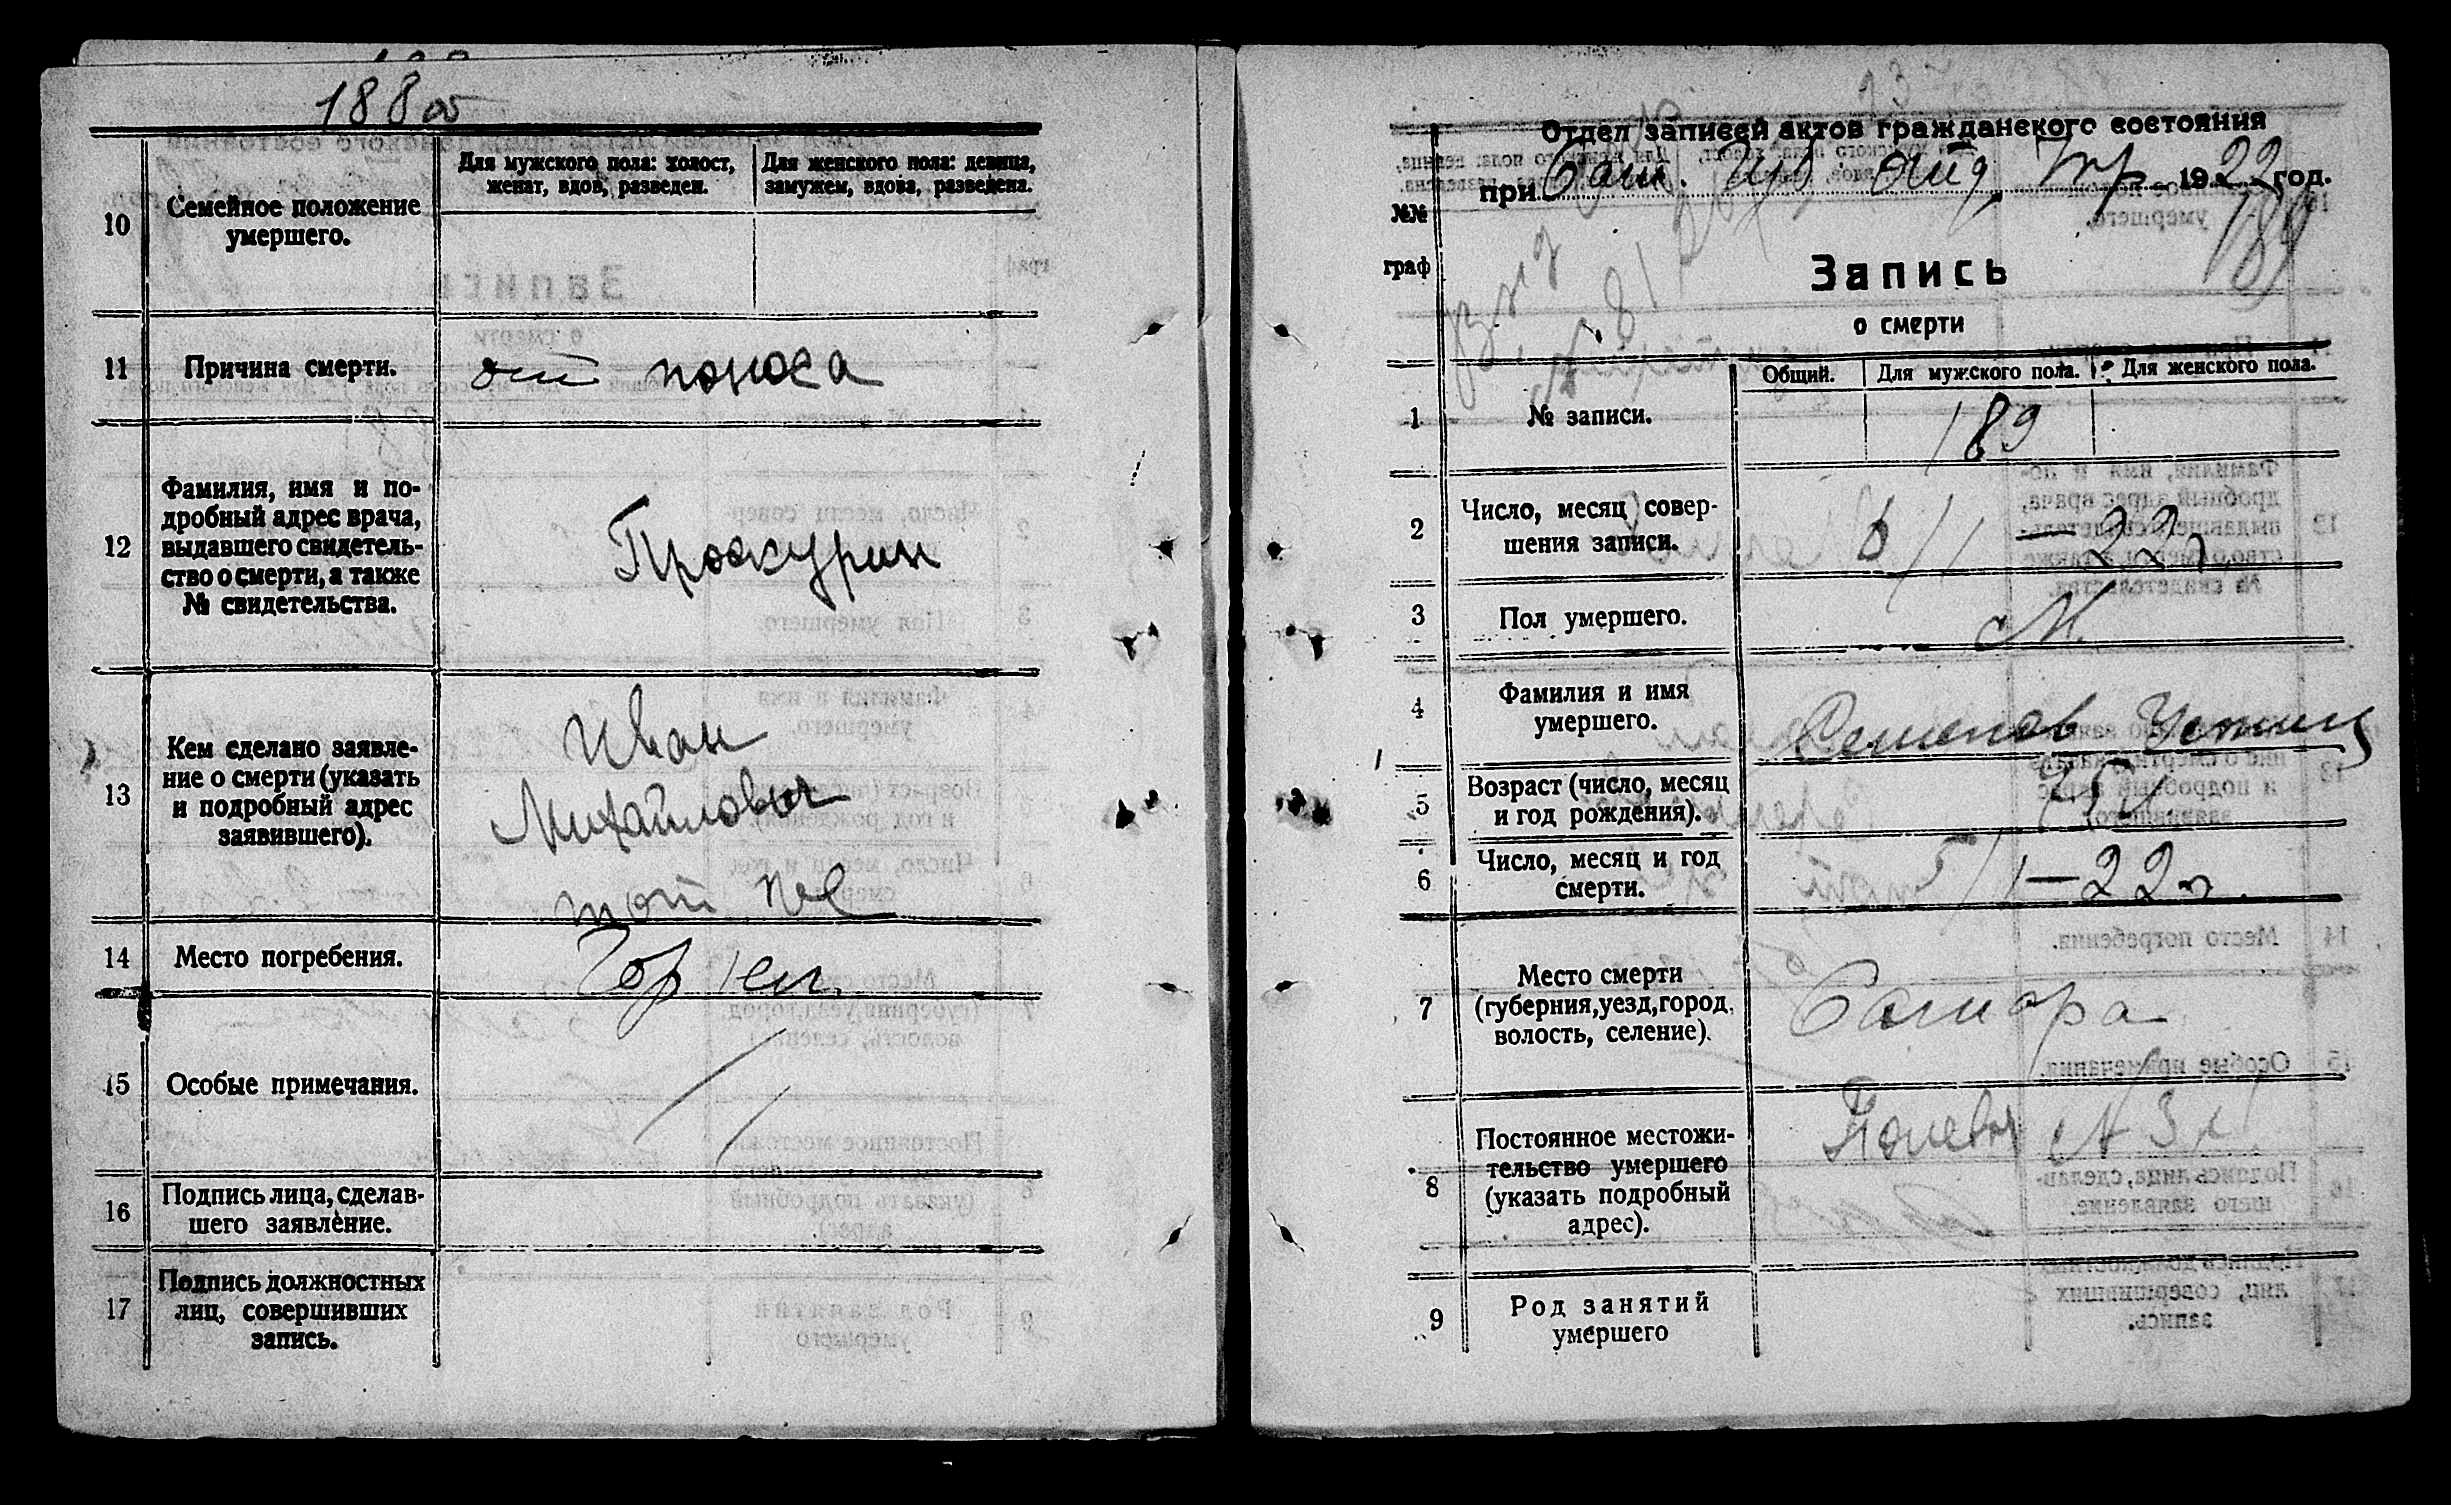 188 об
10
Семейное положение
умершего.
Для мужского пола: холост,
женат, вдов, разведен.
Для женского пола: девица,
замужем, вдова, разведена.
11
Причина смерти.
от поноса
12
Фамилия, имя и по-
дробный адрес врача,
выдавшего свидетель-
ство о смерти, а также
№ свидетельства.
Проскурин
13
Кем сделано заявле-
ние о смерти (указать
и подробный адрес
заявившего).
Иван
Михайлович
тот же
14
Место погребения.
Гор
15
Особые примечания.
16
Подпись лица, сделав-
шего заявление.
17
Подпись должностных
лиц, совершивших
запись.
Отдел записей актов гражданского состояния
при Сам. Губ отд. 1922 год.
189
№№
граф
Запись
о смерти
Общий.
Для мужского пола.
Для женского пола.
1
№ записи.
189
2
Число, месяц совер-
шения записи.
6/I — 22 г.
3
Пол умершего.
М.
4
Фамилия и имя
умершего.
Семенов
5
Возраст (число, месяц
и год рождения).
6
Число, месяц и год
смерти.
5/I — 22 г.
7
Место смерти
(губерния, уезд, город,
волость, селение).
Самара
8
Постоянное местожи-
тельство умершего
(указать подробный
адрес).
9
Род занятий
умершего